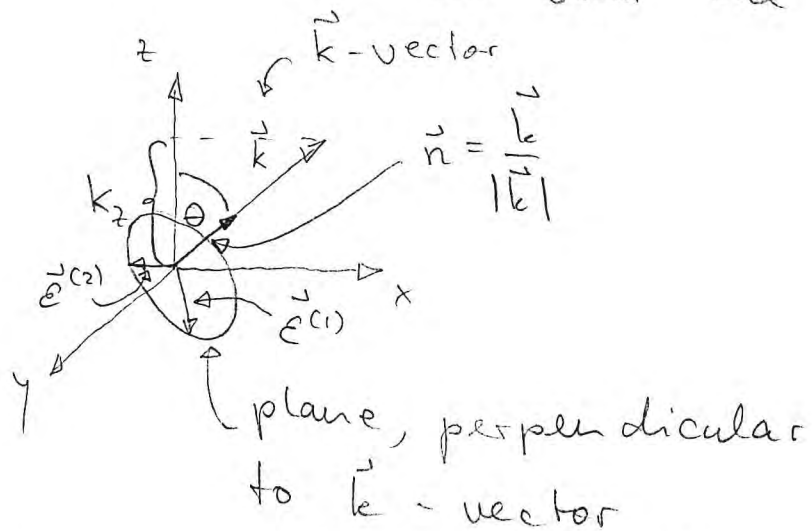 z
k⃗-vector
k⃗
n⃗ = k⃗ / |k⃗|
k_z
θ
ε⃗⁽²⁾
ε⃗⁽¹⁾
x
y
plane, perpendicular
to k⃗ - vector